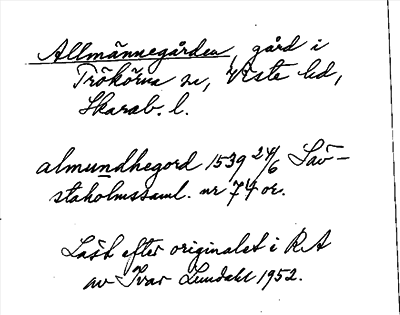 Allmännegården, gård i
Trökörna sn, Viste hd,
Skarab. l.
almundhegord 1539 24/6 Säv-
staholmssaml. nr 74 or.
Läst efter originalet i RA
av Ivar Lundahl 1952.